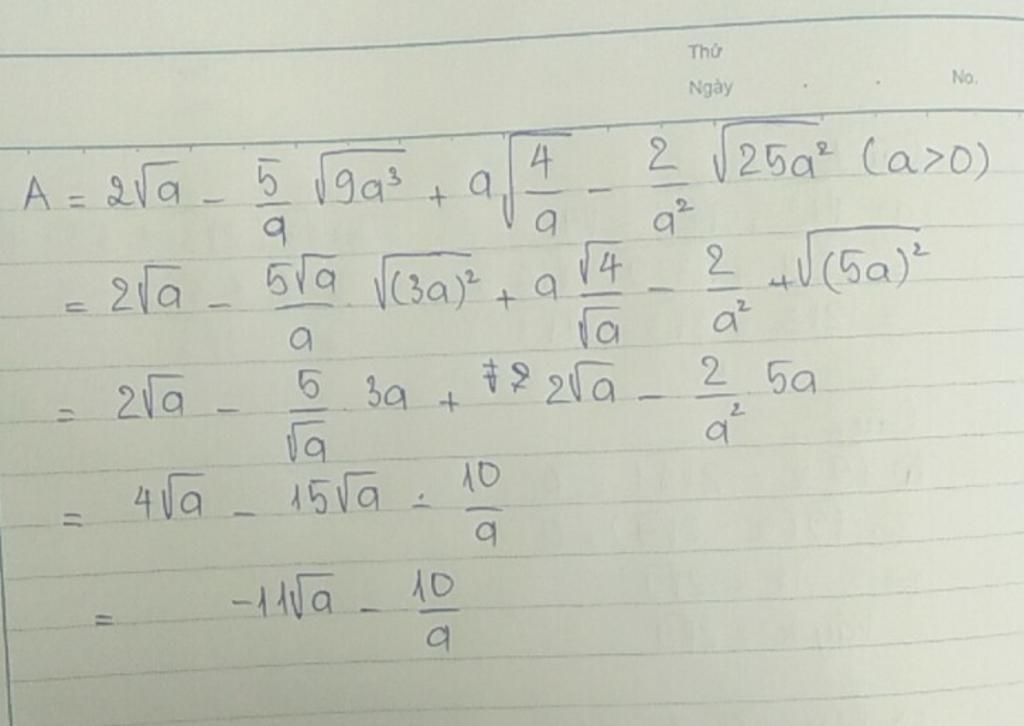 Thứ
Ngày . . No.
A = 2√a - 5/a √(9a³) + a√(4/a) - 2/a² √(25a²) (a>0)
= 2√a - 5√a/a . √((3a)²) + a √4/√a - 2/a² √((5a)²)
= 2√a - 5/√a 3a + 2√a - 2/a² 5a
= 4√a - 15√a - 10/a
= -11√a - 10/a